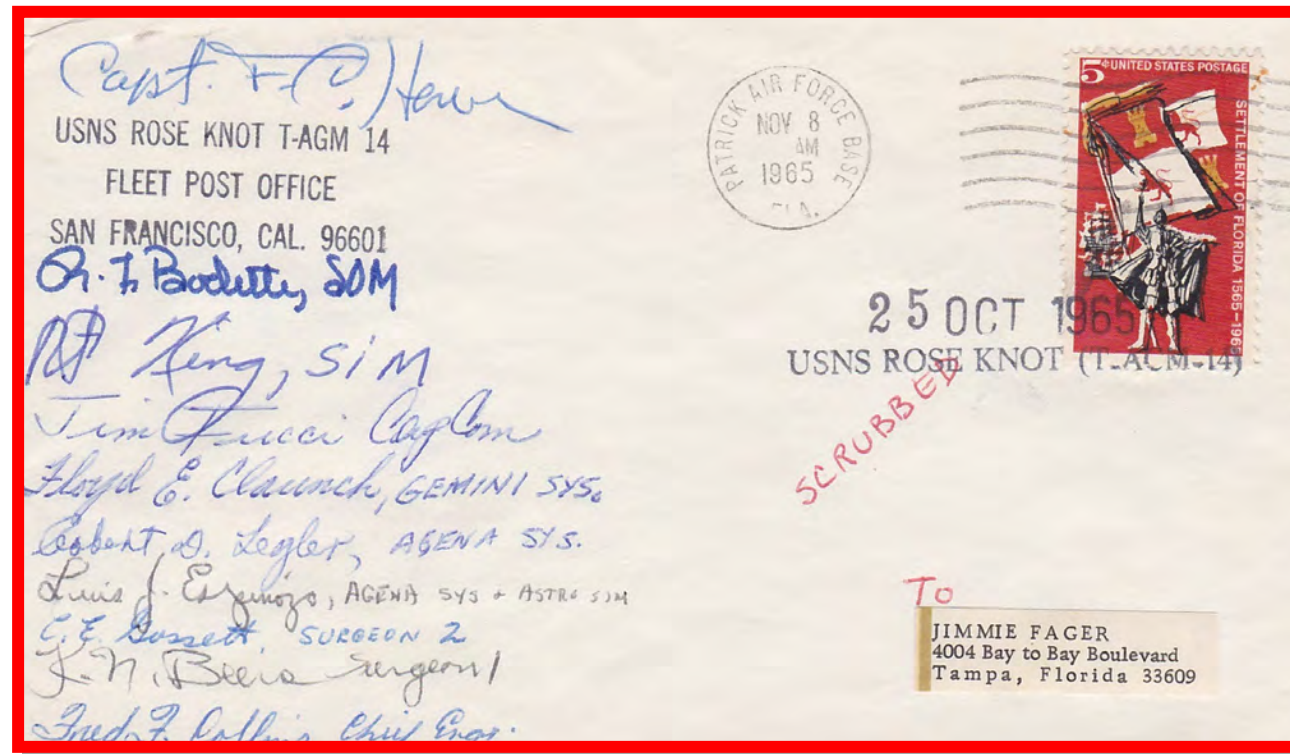 Capt. F. C.
USNS ROSE KNOT T-AGM 14
FLEET POST OFFICE
SAN FRANCISCO, CAL. 96601
SOM
King, SIM
Jim Fucci CapCom
Floyd E. Claunch, GEMINI SYS.
Robert D. Legler, AGENA SYS.
Luis J. Espinozo, AGENA SYS + ASTRO SIM
C. E. Gossett, SURGEON 2
K. N. Beers Surgeon 1
Fred F. Chief Engr.
PATRICK AIR FORCE BASE
NOV 8
AM
1965
FLA.
5¢ UNITED STATES POSTAGE
SETTLEMENT OF FLORIDA 1565-1965
25 OCT 1965
USNS ROSE KNOT (T-AGM-14)
SCRUBBED
To
JIMMIE FAGER
4004 Bay to Bay Boulevard
Tampa, Florida 33609